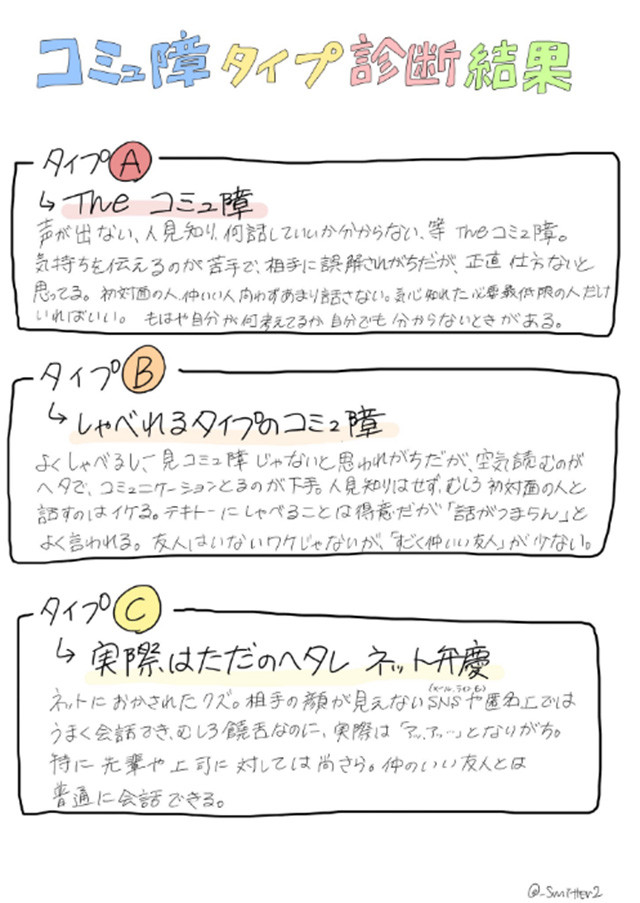 コミュ障タイプ診断結果
タイプA
↳ The コミュ障
声が出ない、人見知り、何話していいか分からない、等 Theコミュ障。
気持ちを伝えるのが苦手で、相手に誤解されがちだが、正直仕方ないと
思ってる。初対面の人、仲いい人問わずあまり話さない。気心知れた必要最低限の人だけ
いればいい。もはや自分が何考えてるか自分でも分からないときがある。
タイプB
↳ しゃべれるタイプのコミュ障
よくしゃべるし、一見コミュ障じゃないと思われがちだが、空気読むのが
ヘタで、コミュニケーションとるのが下手。人見知りはせず、むしろ初対面の人と
話すのはイケる。テキトーにしゃべることは得意だが「話がつまらん」と
よく言われる。友人はいないワケじゃないが、「すごく仲いい友人」が少ない。
タイプC
↳ 実際はただのヘタレ ネット弁慶
ネットにおかされたクズ。相手の顔が見えないSNSや匿名上では
(メール、ライン も)
うまく会話でき、むしろ饒舌なのに、実際は「アッ、アッ…」となりがち。
特に先輩や上司に対しては尚さら。仲のいい友人とは
普通に会話できる。
@_Smitter2